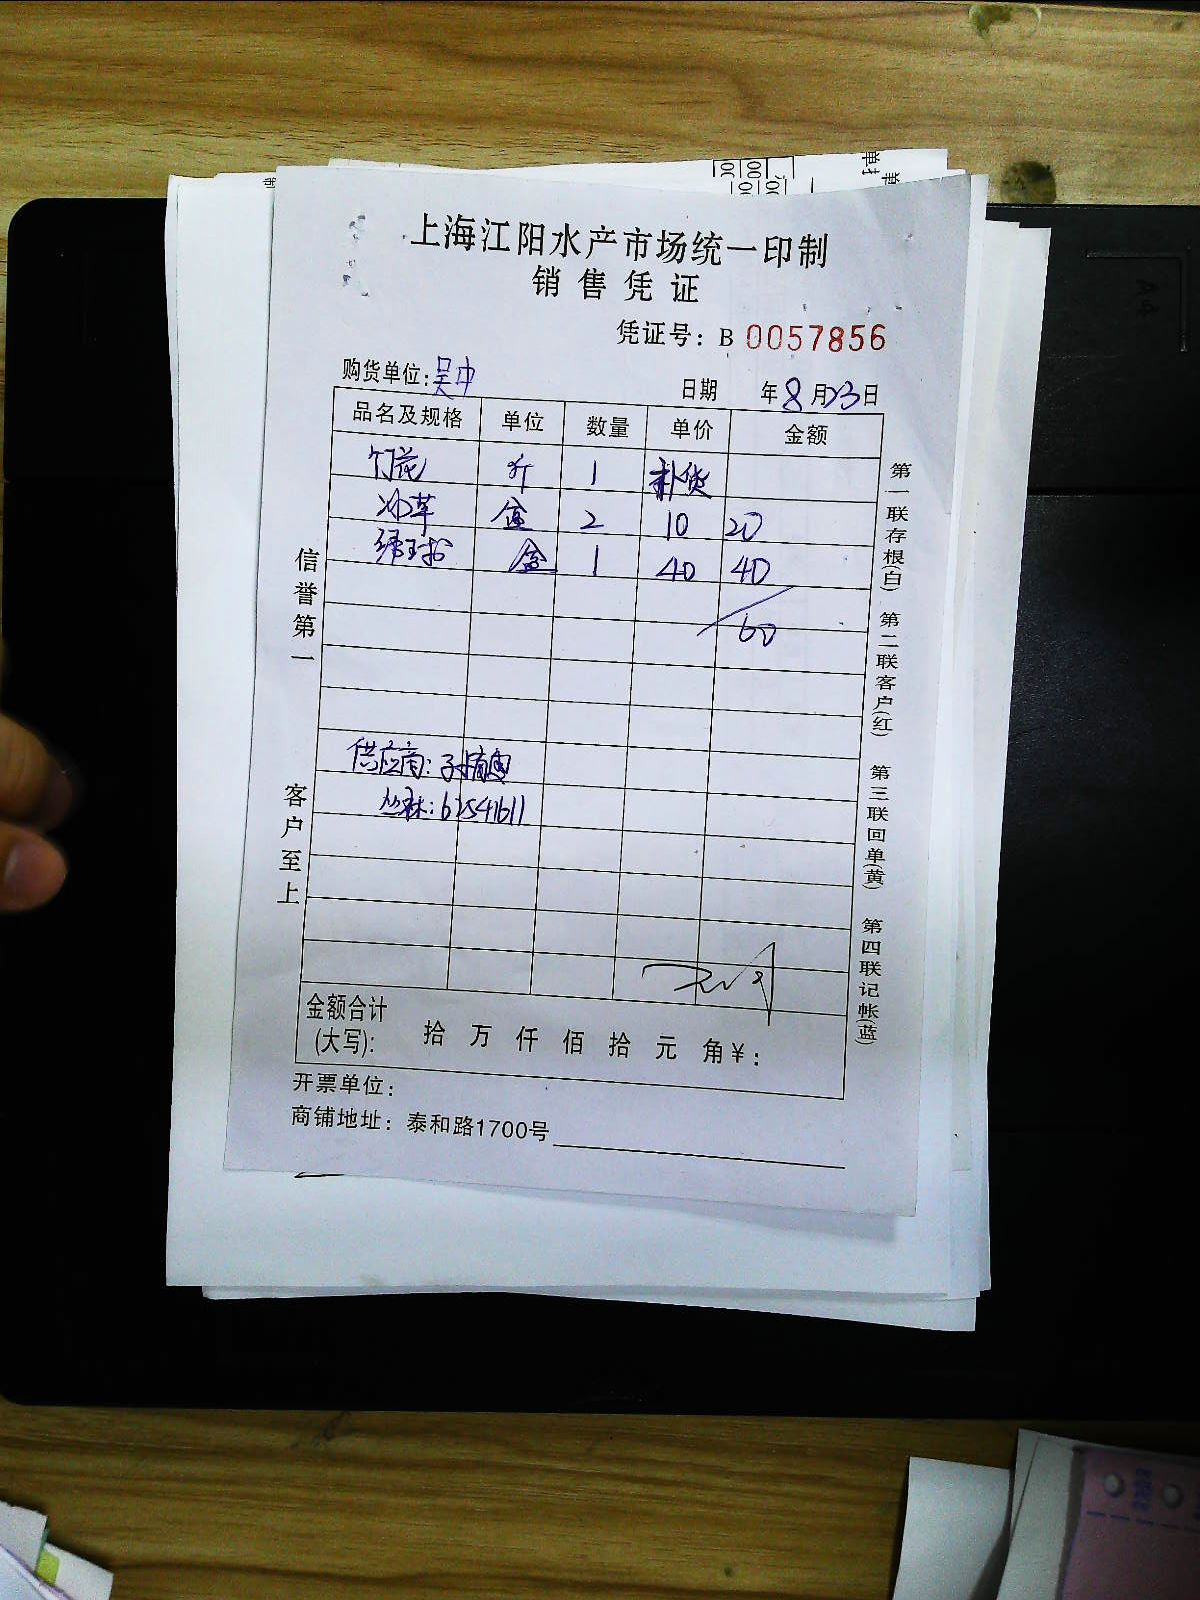 上海江阳水产市场统一印制
销售凭证
凭证号：B 0057856
购货单位：吴中 日期 年8月23日
品名及规格 单位 数量 单价 金额
竹花 斤 1 补货
冰草 盒 2 10 20
盒 1 40 40
60
供应商：
丛林：61541611
金额合计
(大写)： 拾 万 仟 佰 拾 元 角 ¥：
开票单位：
商铺地址：泰和路1700号
信誉第一
客户至上
第一联存根(白) 第二联客户(红) 第三联回单(黄) 第四联记帐(蓝)
A4